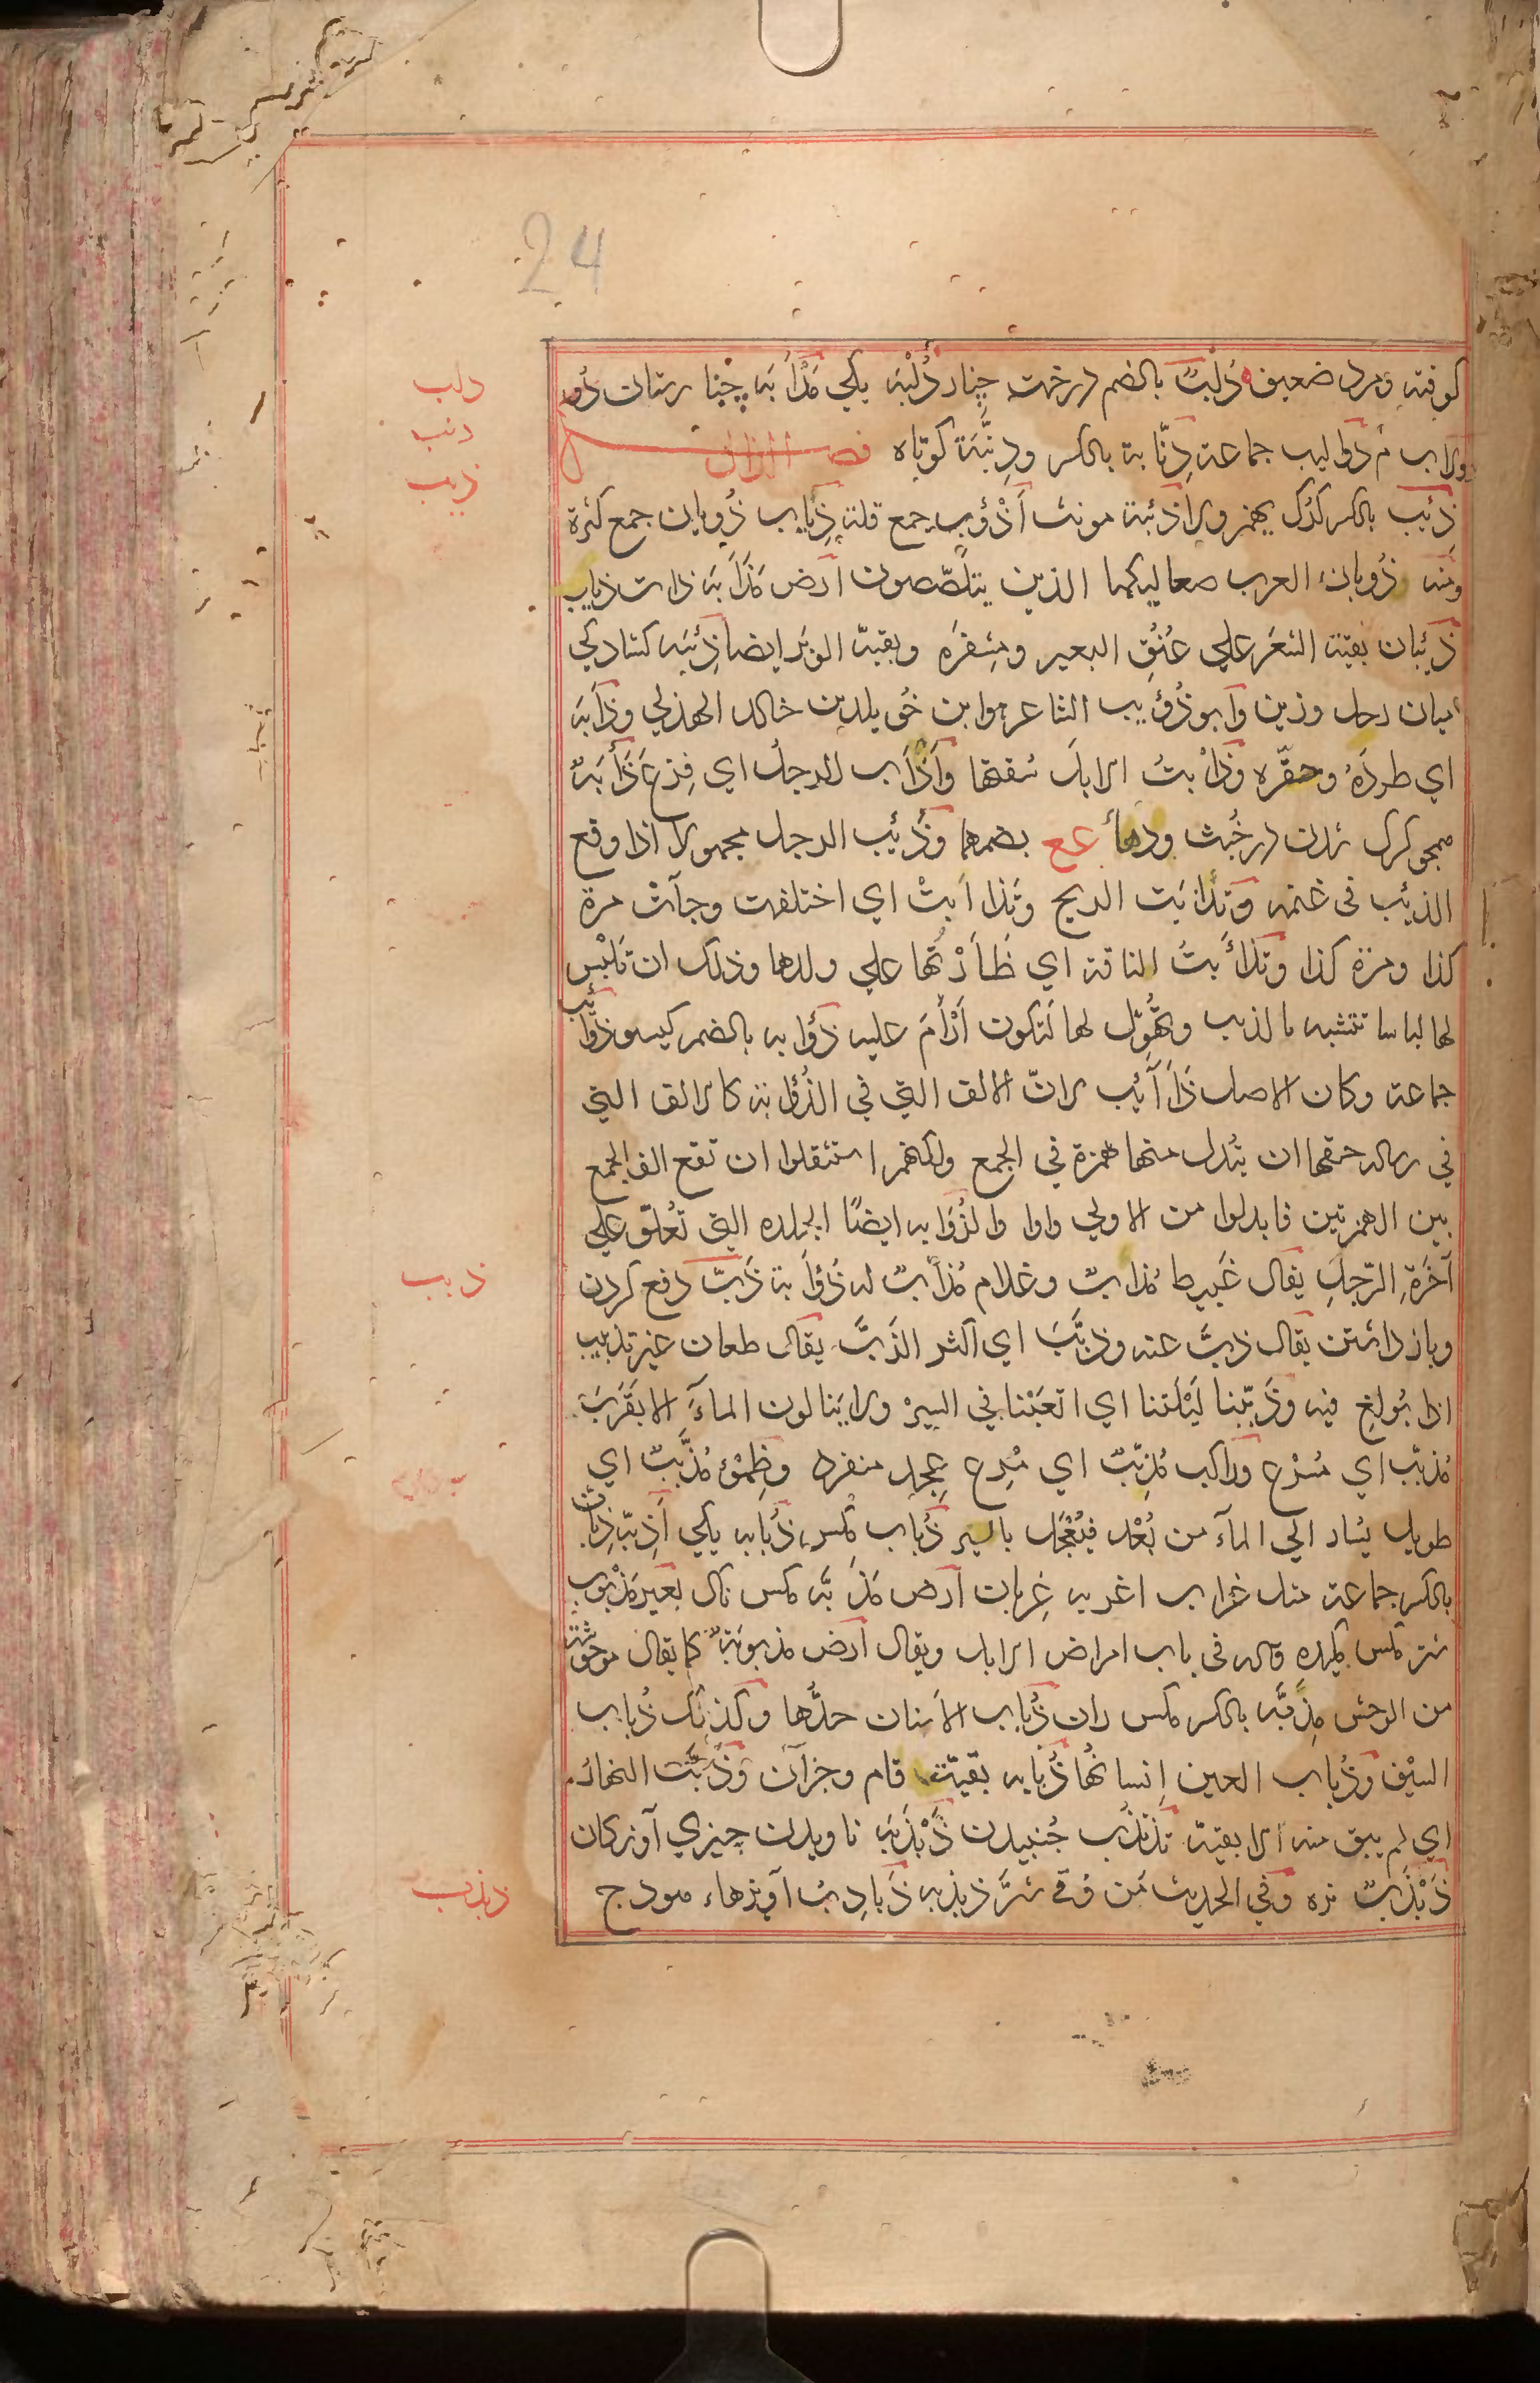 24
کوفته ومرد ضعیف دُلْبٌ بالضم درخت چنار دُلْبَه یکی مَدْلَبَه چنارستان
دولاب م دوالیب جماعة دِنّابة بالکسر ودِنَّبَة کوتاه فصل الذال
ذِئب بالکسر کرک یهمز ولا ذئبة مونث أَذْؤب جمع قلة ذِیاب ذُوبان جمع کثرة
ومنه ذُوبان العرب صعالیکها الذین یتلصّصون ارض مَذْأَبَه ذات ذیاب
ذئبان بقیة الشَعَر علی عُنُقِ البعیر ومِشفره وبقیة الوَبَر ایضا ذِئبَه کشادکی
میان رحل وزین وابو ذُؤَیب الشاعر هو ابن خُویلد بن خالد الهذلی وذَأَبَه
ای طردَهُ وحقّره وذَأَبْتُ الابل سُقتها وأَذْأَب الرجل ای فزع ذَأُبَة
همچو کرک شدن در خُبث ودهأ عع بضمهما وذُئِب الرجل مجهولا اذا وقع
الذئب فی غنمه وتذأبَت الریح وتذاأبتْ ای اختلفت وجآت مرة
کذا ومرة کذا وتذأَّبتُ الناقة ای ظَأَرْتُها علی ولدها وذلک ان تَلْبَس
لها لباسا تتشبه بالذیب وتُهَوِّل لها لتکون أَرْأَمَ علیه ذُؤابه بالضم کیسو ذوائب
جماعة وکان الاصل ذَأَآئب لانّ الالف التی فی الذُؤابة کالالف التی
فی رساله حقها ان تُبدل منها همزة فی الجمع ولکنهم استثقلوا ان تقع الف الجمع
بین الهمزتین فابدلوا من الاولی واوا والذُؤابه ایضًا الجلده التی تُعلّق علی
آخَرَةِ الرّحلِ یقال غَبیط مُذَأَّبٌ وغلام مُذَأَّبٌ له ذُؤَابة ذَبّ دفع کردن
وباز داشتن یقال ذبّ عنه وذبَّبَ ای اکثر الذَبَّ یقال طعان غیر تذبیب
اذا بُولغ فیه وذَبَّبنا لَیْلَتنا ای اتعَبْنا فی السیر ولا ینالون المآءَ الا بقَرَبٍ
مُذبِّب ای مُسْرع وراکب مُذبِّبٌ ای مُسرِع عَجِل منفرد وظِمْئ مُذَبِّبٌ ای
طویل یُسار الی المآء من بُعْد فیُعْجَل بالسیر ذُباب مکس ذُبابه یکی أَذِبّه ذِبّان
بالکسر جماعة مثل غراب اغربه غِربان ارض مَذَبَّه مکس ناک بعیر مَذْبوب
شتر مکس کَزیده قاله فی باب امراض الابل ویقال ارض مذبوبَةٌ کما یقال موحوشة
من الوحش مِذَبَّه بالکسر مکس ران ذُباب الاسنان حدُّها وکذلک ذُباب
السیْف وذُباب العین اِنسانُها ذُبابه بقیّت وام وجز آن وذَبَّبَت النهارُ
ای لم یبق منه الا بقیة تَذَبْذُب جُنبیدن ذَبْذَبَه ناویدن چیزی آوزکان
ذَبْذَبٌ نره وفی الحدیث مَن وُقِیَ شرَّ ذبذبه ذَباذِبُ آویزهاء هودج
دلب
دنب
ذیب
ذبب
ذبذب